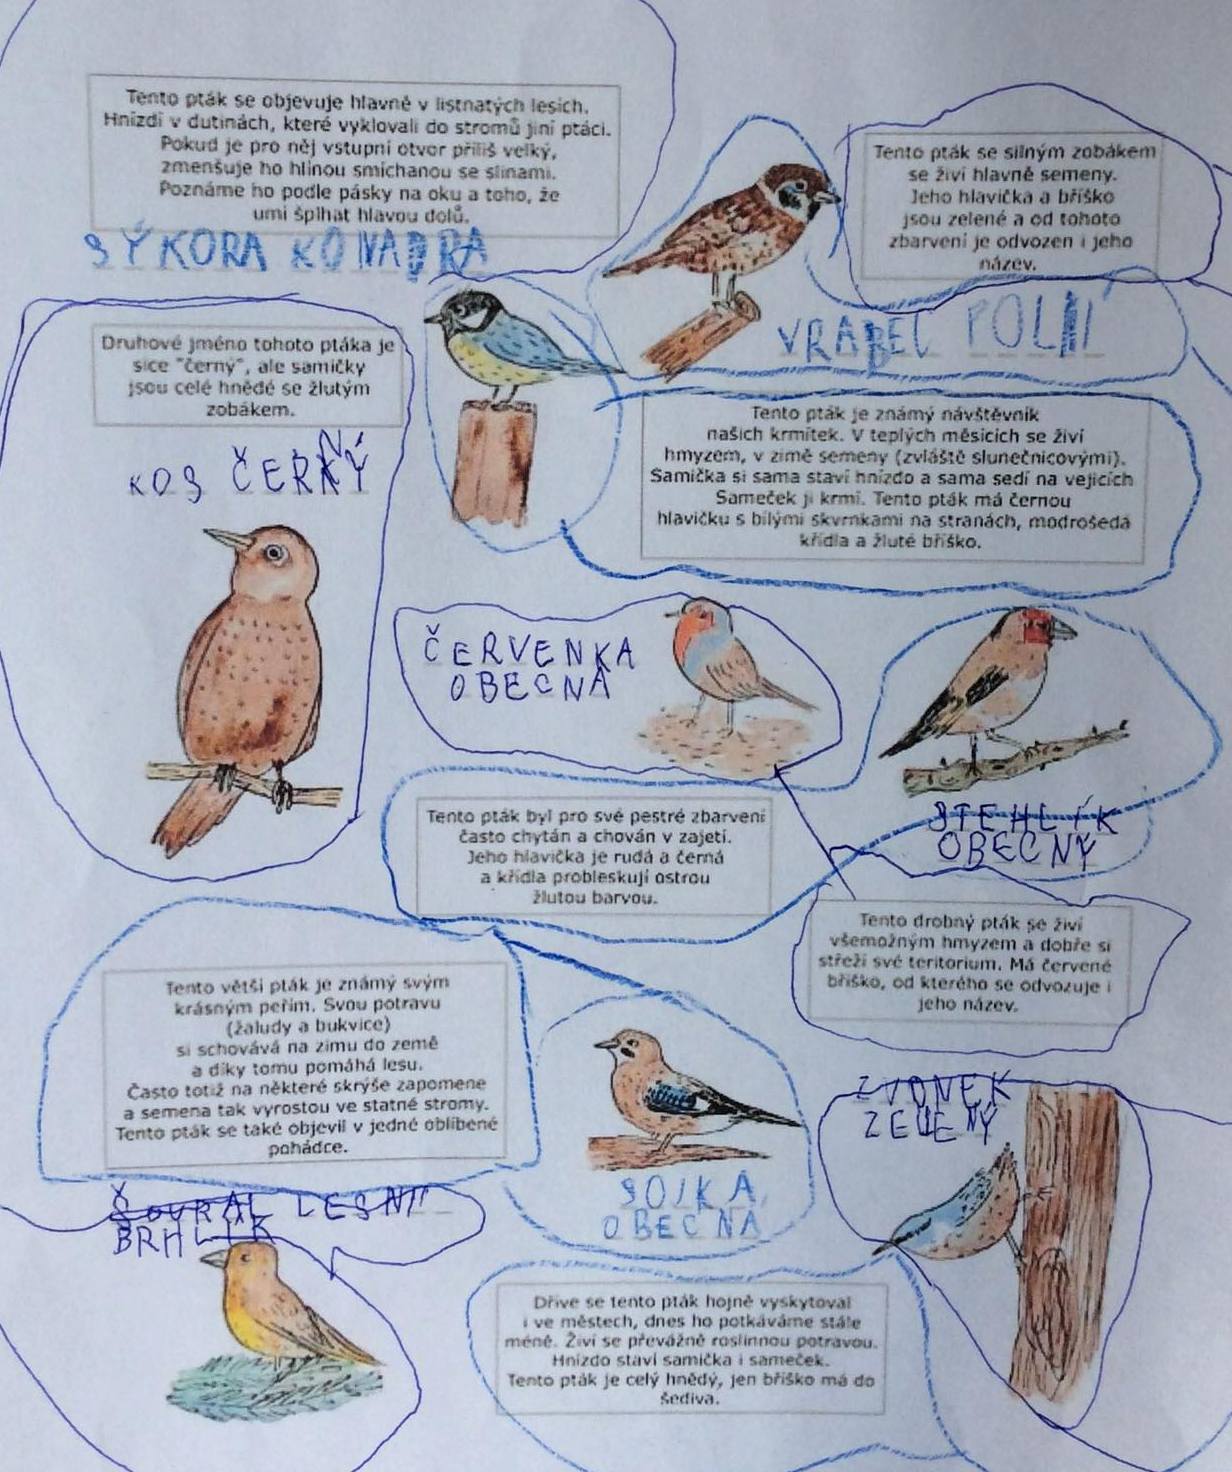 Tento pták se objevuje hlavně v listnatých lesích.
Hnízdí v dutinách, které vyklovali do stromů jiní ptáci.
Pokud je pro něj vstupní otvor příliš velký,
zmenšuje ho hlínou smíchanou se slinami.
Poznáme ho podle pásky na oku a toho, že
umí šplhat hlavou dolů.
SÝKORA KOŇADRA
Tento pták se silným zobákem
se živí hlavně semeny.
Jeho hlavička a bříško
jsou zelené a od tohoto
zbarvení je odvozen i jeho
název.
VRABEC POLNÍ
Druhové jméno tohoto ptáka je
sice "černý", ale samičky
jsou celé hnědé se žlutým
zobákem.
KOS ČERNÝ
Tento pták je známý návštěvník
našich krmítek. V teplých měsících se živí
hmyzem, v zimě semeny (zvláště slunečnicovými).
Samička si sama staví hnízdo a sama sedí na vejicích
Sameček ji krmí. Tento pták má černou
hlavičku s bílými skvrnkami na stranách, modrošedá
křídla a žluté bříško.
ČERVENKA
OBECNÁ
Tento pták byl pro své pestré zbarvení
často chytán a chován v zajetí.
Jeho hlavička je rudá a černá
a křídla probleskují ostrou
žlutou barvou.
STEHLÍK
OBECNÝ
Tento drobný pták se živí
všemožným hmyzem a dobře si
střeží své teritorium. Má červené
bříško, od kterého se odvozuje i
jeho název.
Tento větší pták je známý svým
krásným peřím. Svou potravu
(žaludy a bukvice)
si schovává na zimu do země
a díky tomu pomáhá lesu.
Často totiž na některé skrýše zapomene
a semena tak vyrostou ve statné stromy.
Tento pták se také objevil v jedné oblíbené
pohádce.
SOJKA
OBECNÁ
ZVONEK
ZELENÝ
LESNÍ
BRHLÍK
Dříve se tento pták hojně vyskytoval
i ve městech, dnes ho potkáváme stále
méně. Živí se převážně roslinnou potravou.
Hnízdo staví samička i sameček.
Tento pták je celý hnědý, jen bříško má do
šediva.